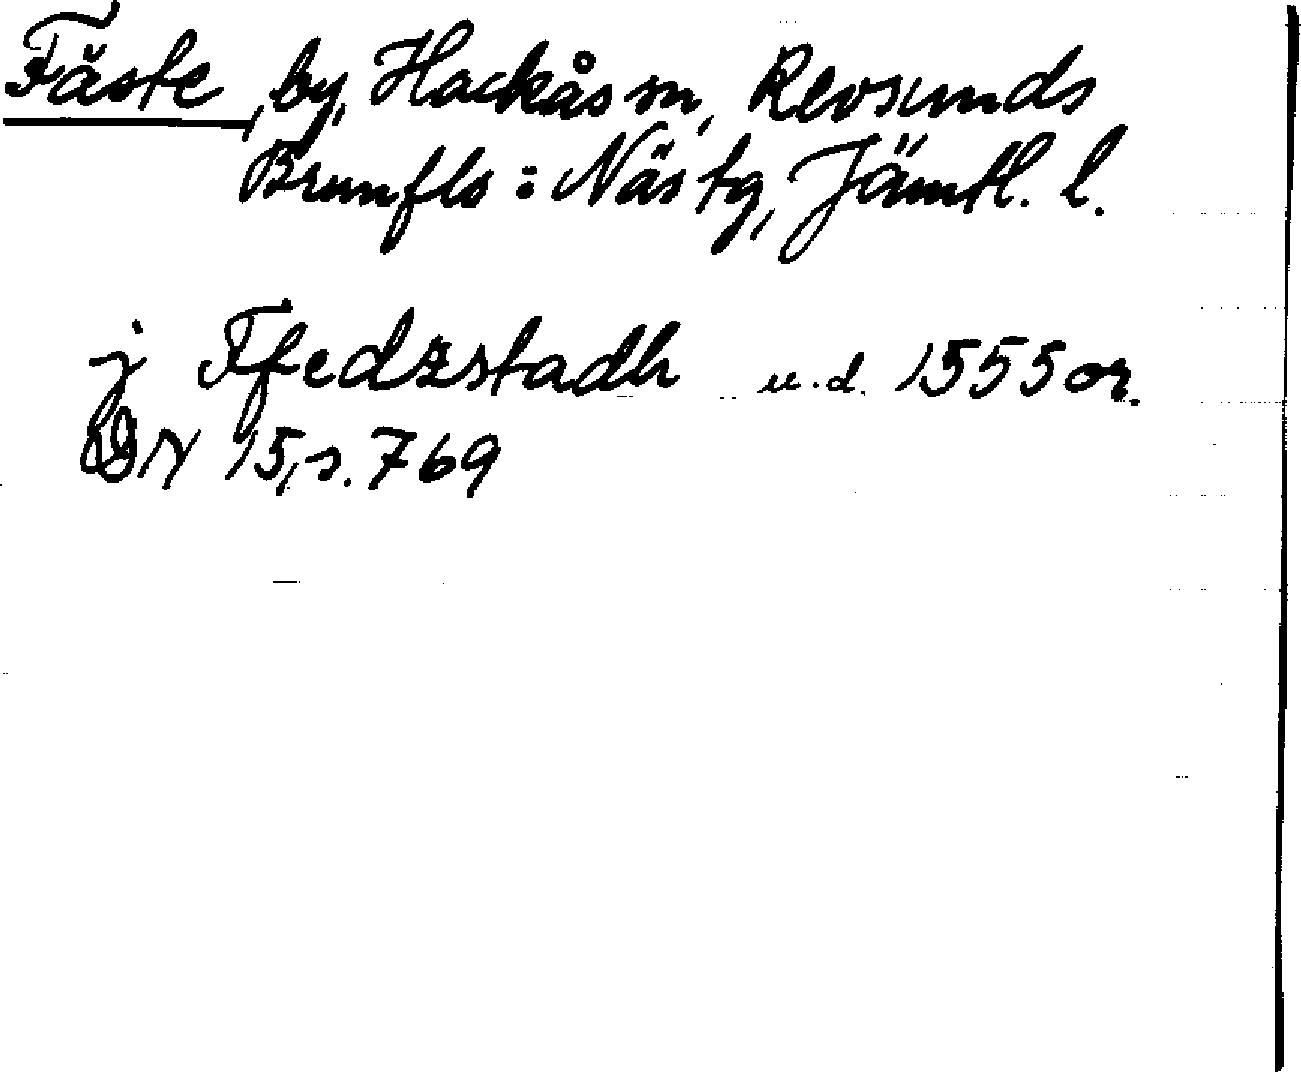 Fäste, by, Hackås sn, Revsunds
Brunflo : Näs tg, Jämtl. l.
j Ffedzstadh u.d. 1555 or.
DN 15, s. 769